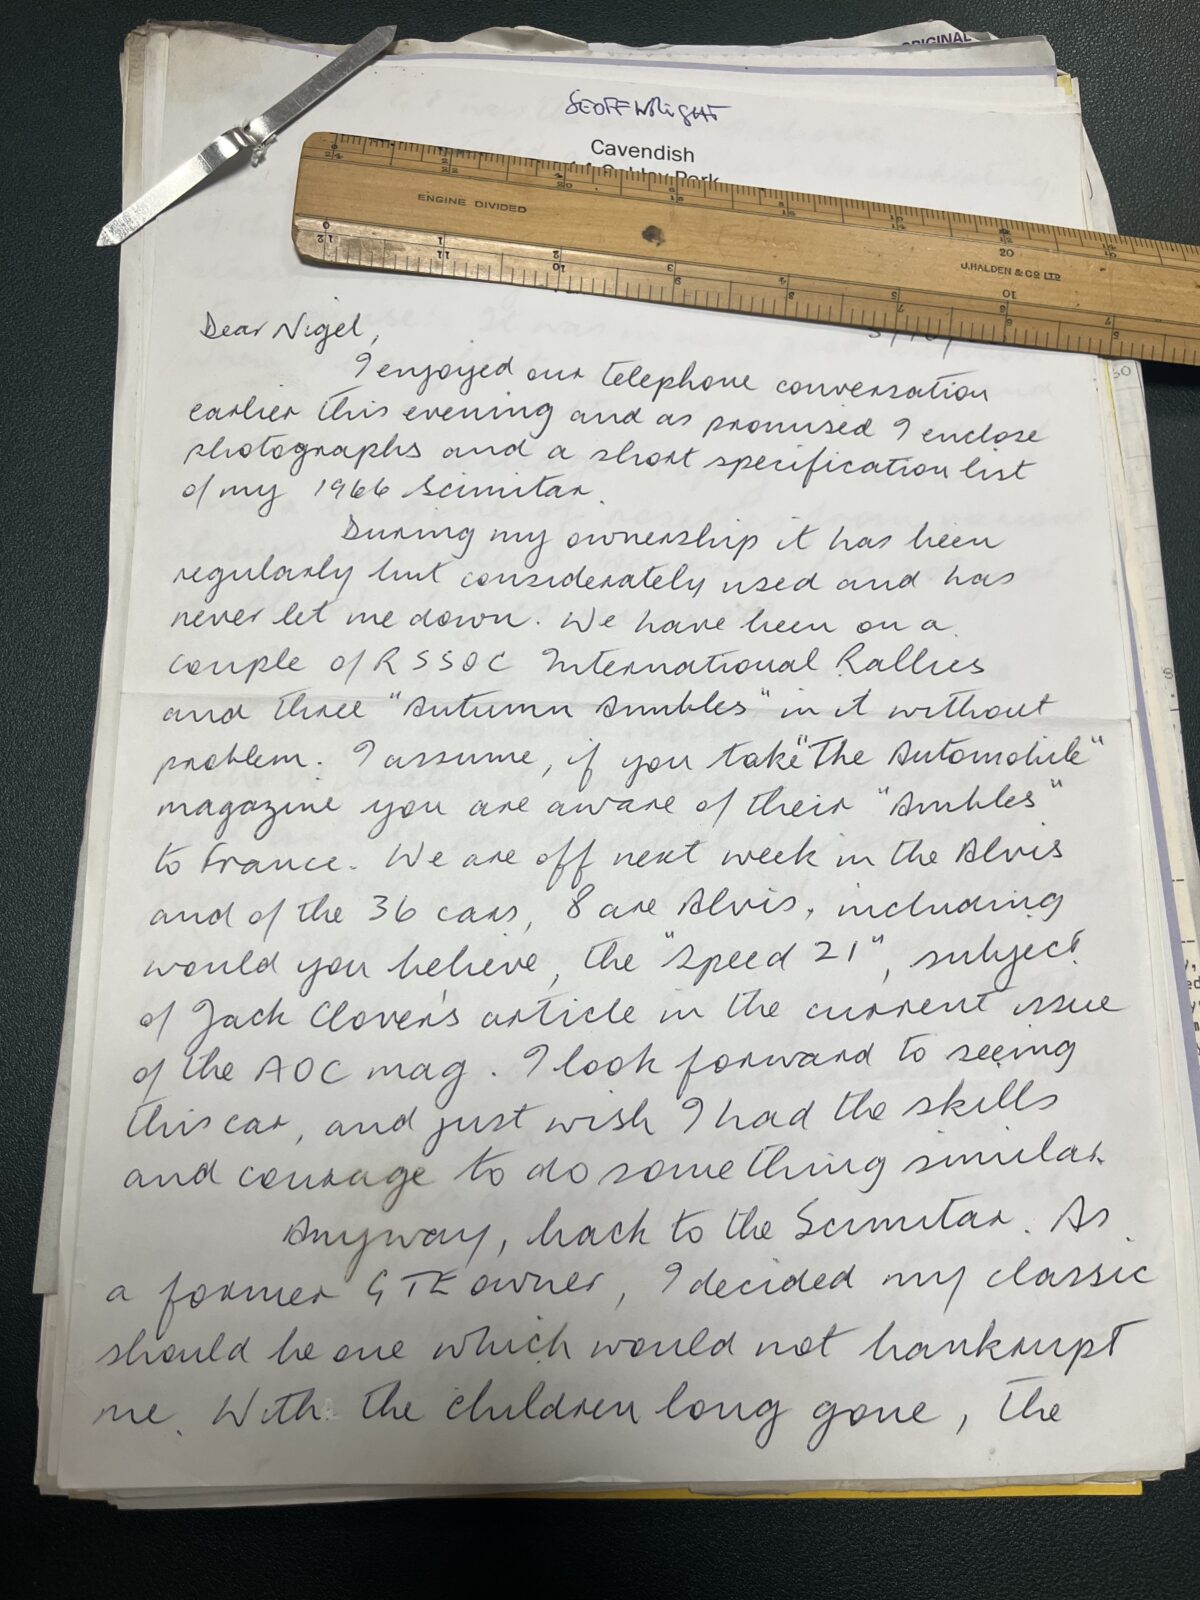 ORIGINAL
GEOFF WRIGHT
Cavendish
Park
ENGINE DIVIDED
J. HALDEN & CO LTD
Dear Nigel,
I enjoyed our telephone conversation
earlier this evening and as promised I enclose
photographs and a short specification list
of my 1966 Scimitar.
During my ownership it has been
regularly but considerately used and has
never let me down. We have been on a
couple of RSSOC International Rallies
and three "Autumn Ambles" in it without
problem. I assume, if you take "The Automobile"
magazine you are aware of their "Ambles"
to France. We are off next week in the Alvis
and of the 36 cars, 8 are Alvis, including
would you believe, the "Speed 21", subject
of Jack Clover's article in the current issue
of the AOC mag. I look forward to seeing
this car, and just wish I had the skills
and courage to do something similar.
Anyway, back to the Scimitar. As
a former GTE owner, I decided my classic
should be one which would not bankrupt
me. With the children long gone, the